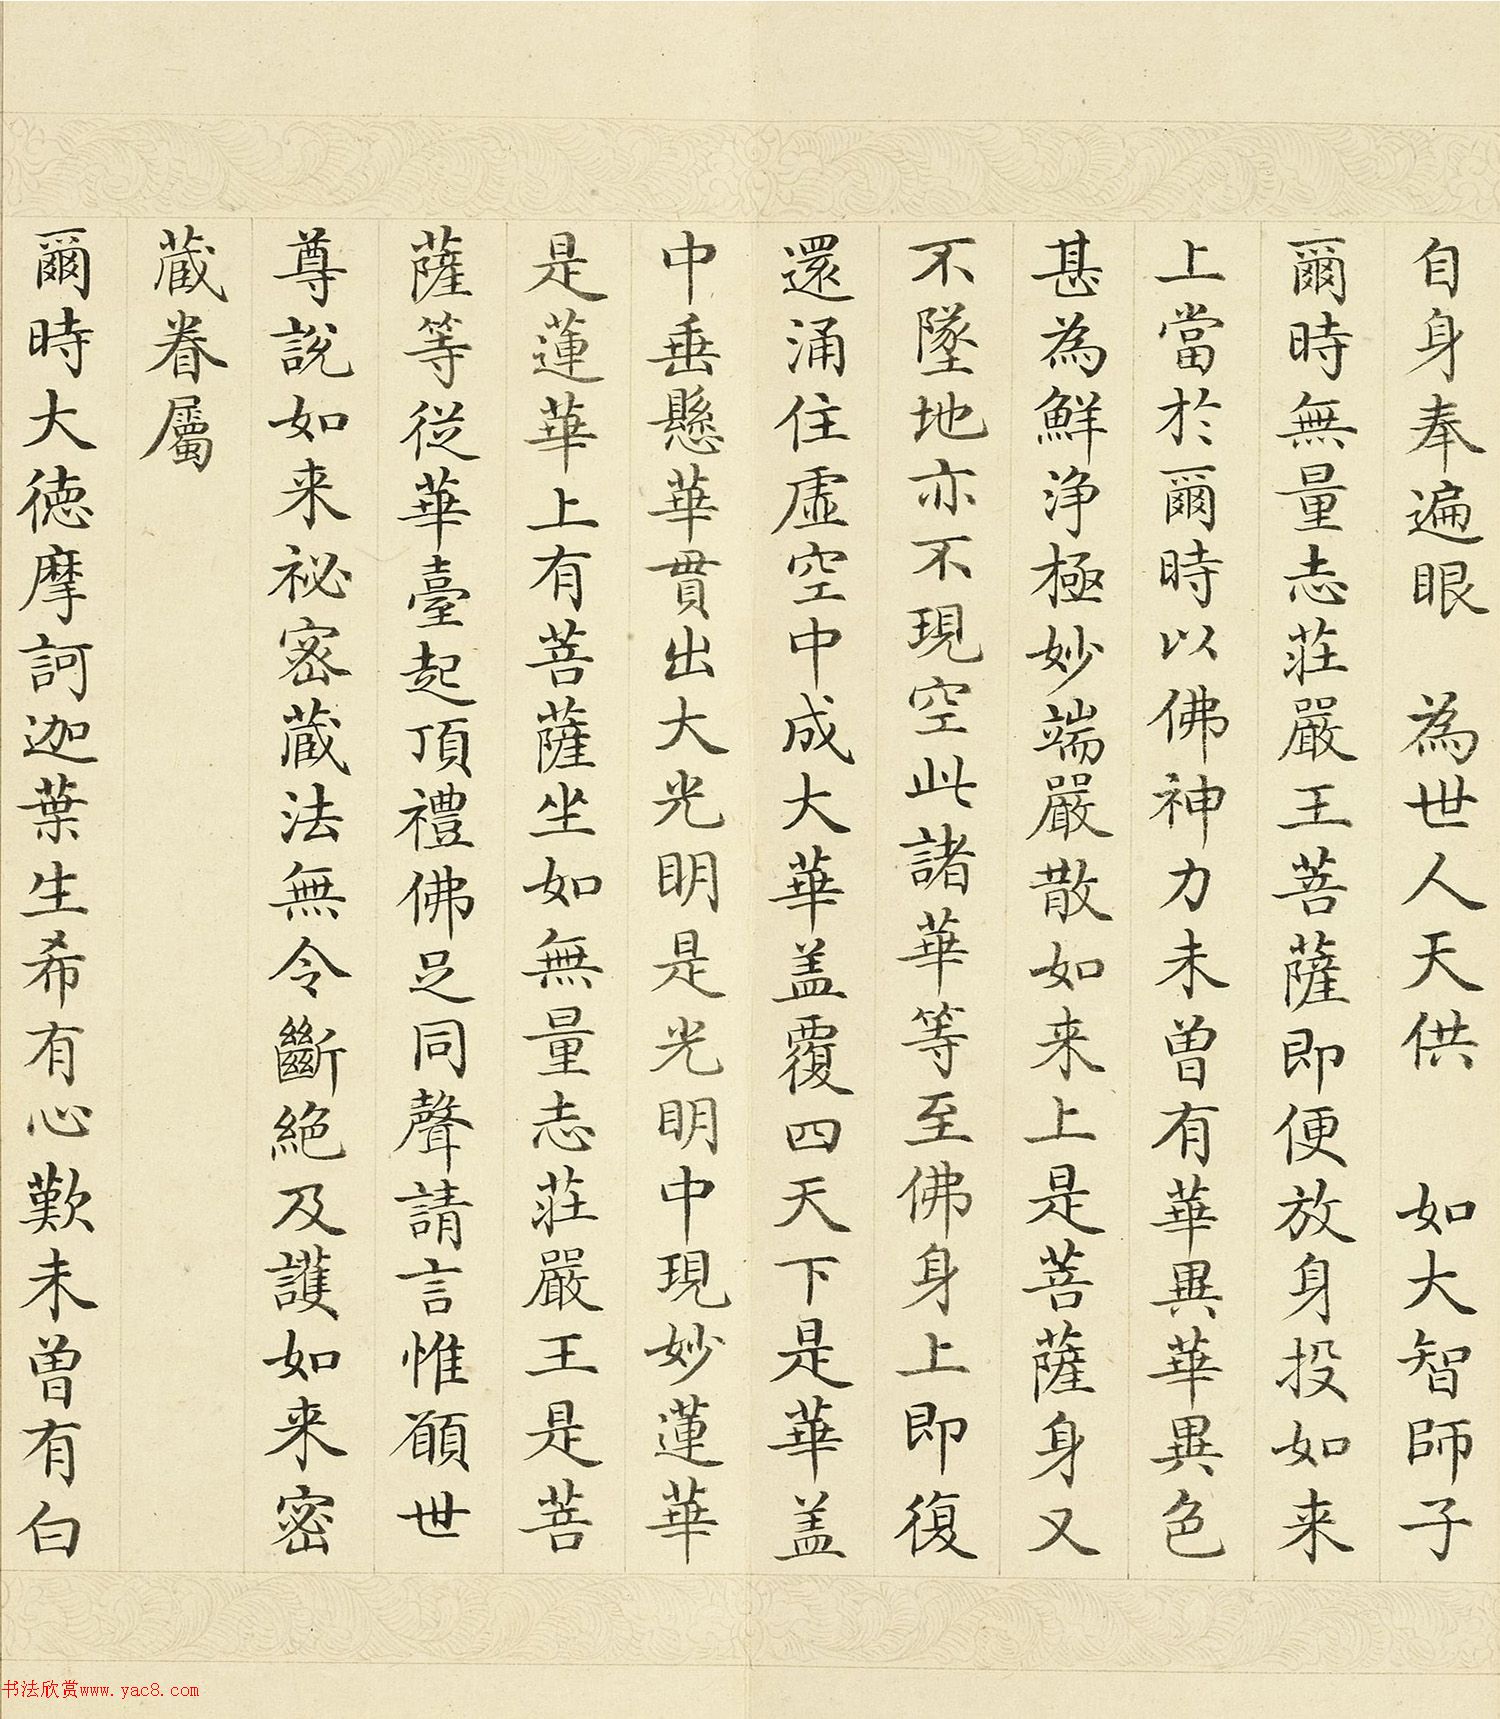 自身奉遍眼　為世人天供　如大智師子
爾時無量志莊嚴王菩薩即便放身投如来
上當於爾時以佛神力未曾有華異華異色
甚為鮮淨極妙端嚴散如来上是菩薩身又
不墜地亦不現空此諸華等至佛身上即復
還涌住虛空中成大華盖覆四天下是華盖
中垂懸華貫出大光明是光明中現妙蓮華
是蓮華上有菩薩坐如無量志莊嚴王是菩
薩等從華臺起頂禮佛足同聲請言惟願世
尊說如来祕密蔵法無令斷絕及護如来密
蔵眷屬
爾時大徳摩訶迦葉生希有心歎未曾有白
书法欣赏www.yac8.com